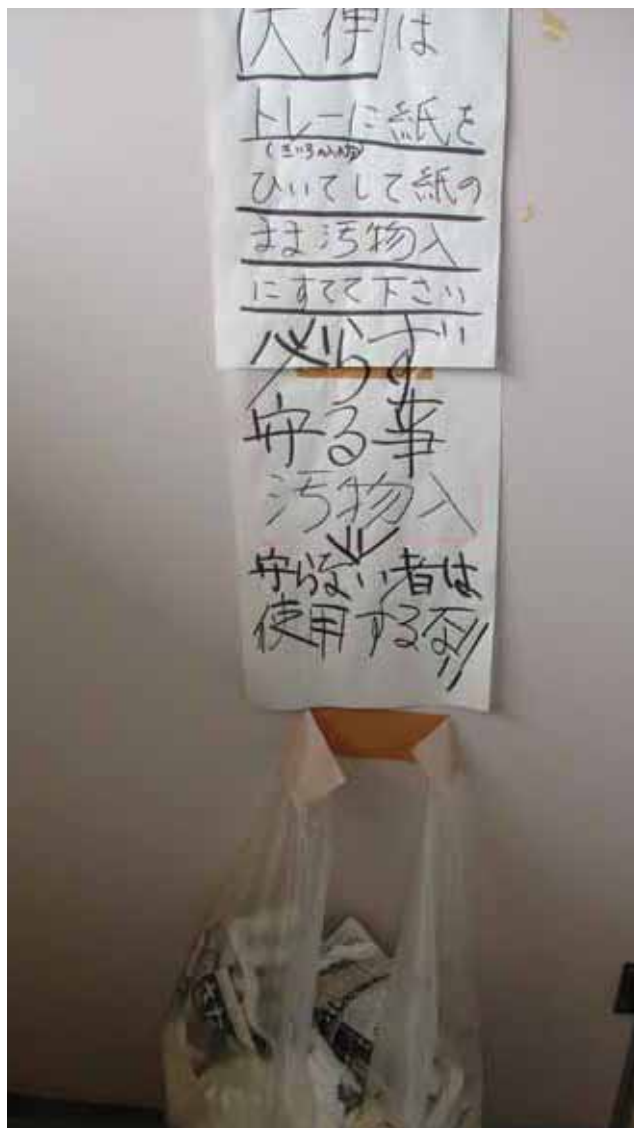 大便は
トレーに紙を
ひいてして紙の
まま汚物入
にすてて下さい
必らず
守る事
汚物入
守らない者は
使用する不可!!